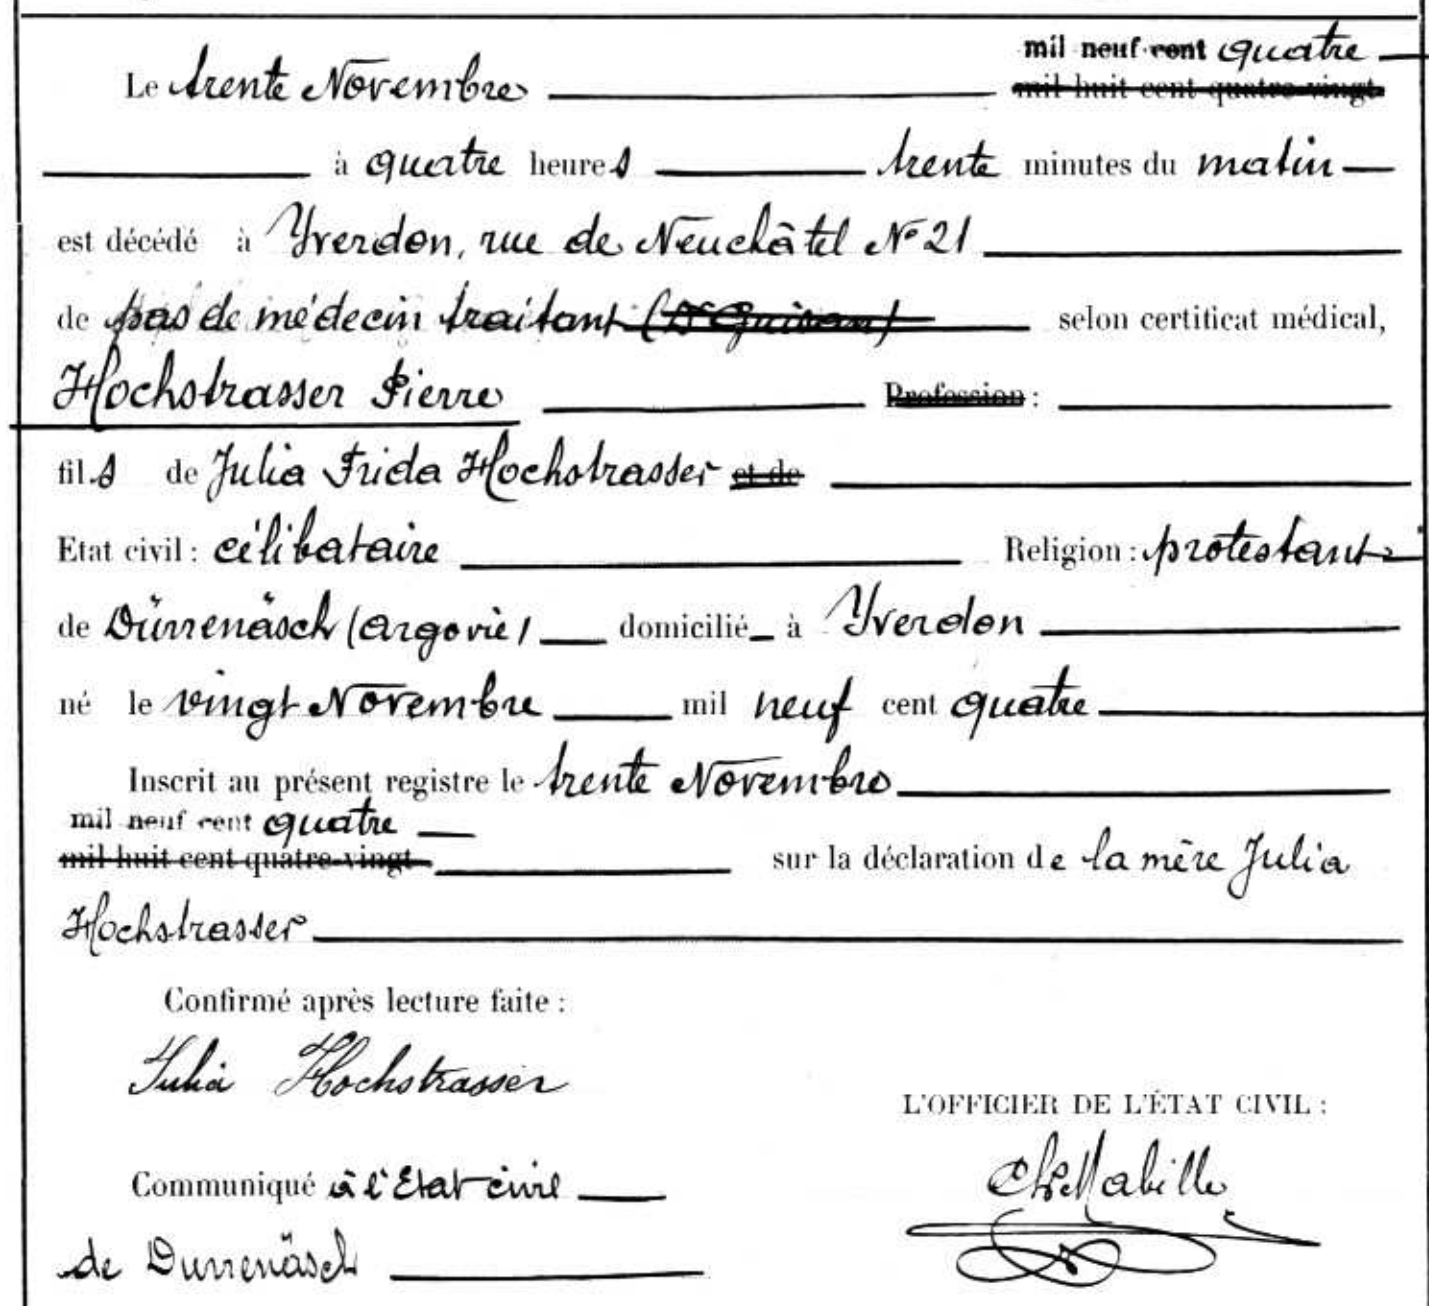 mil neuf cent quatre
Le trente Novembre mil huit cent quatre-vingt
à quatre heures trente minutes du matin
est décédé à Yverdon, rue de Neuchâtel No 21
de pas de médecin traitant (Dr Guisan) selon certificat médical,
Hochstrasser Pierre Profession :
fils de Julia Frida Hochstrasser et de
Etat civil : célibataire Religion : protestant
de Dürrenäsch (Argovie) domicilié à Yverdon
né le vingt Novembre mil neuf cent quatre
Inscrit au présent registre le trente Novembre
mil neuf cent quatre
mil huit cent quatre-vingt sur la déclaration de la mère Julia
Hochstrasser
Confirmé après lecture faite :
Julia Hochstrasser
L'OFFICIER DE L'ÉTAT CIVIL :
Ch. Mabille
Communiqué à l'Etat civil
de Durrenäsch